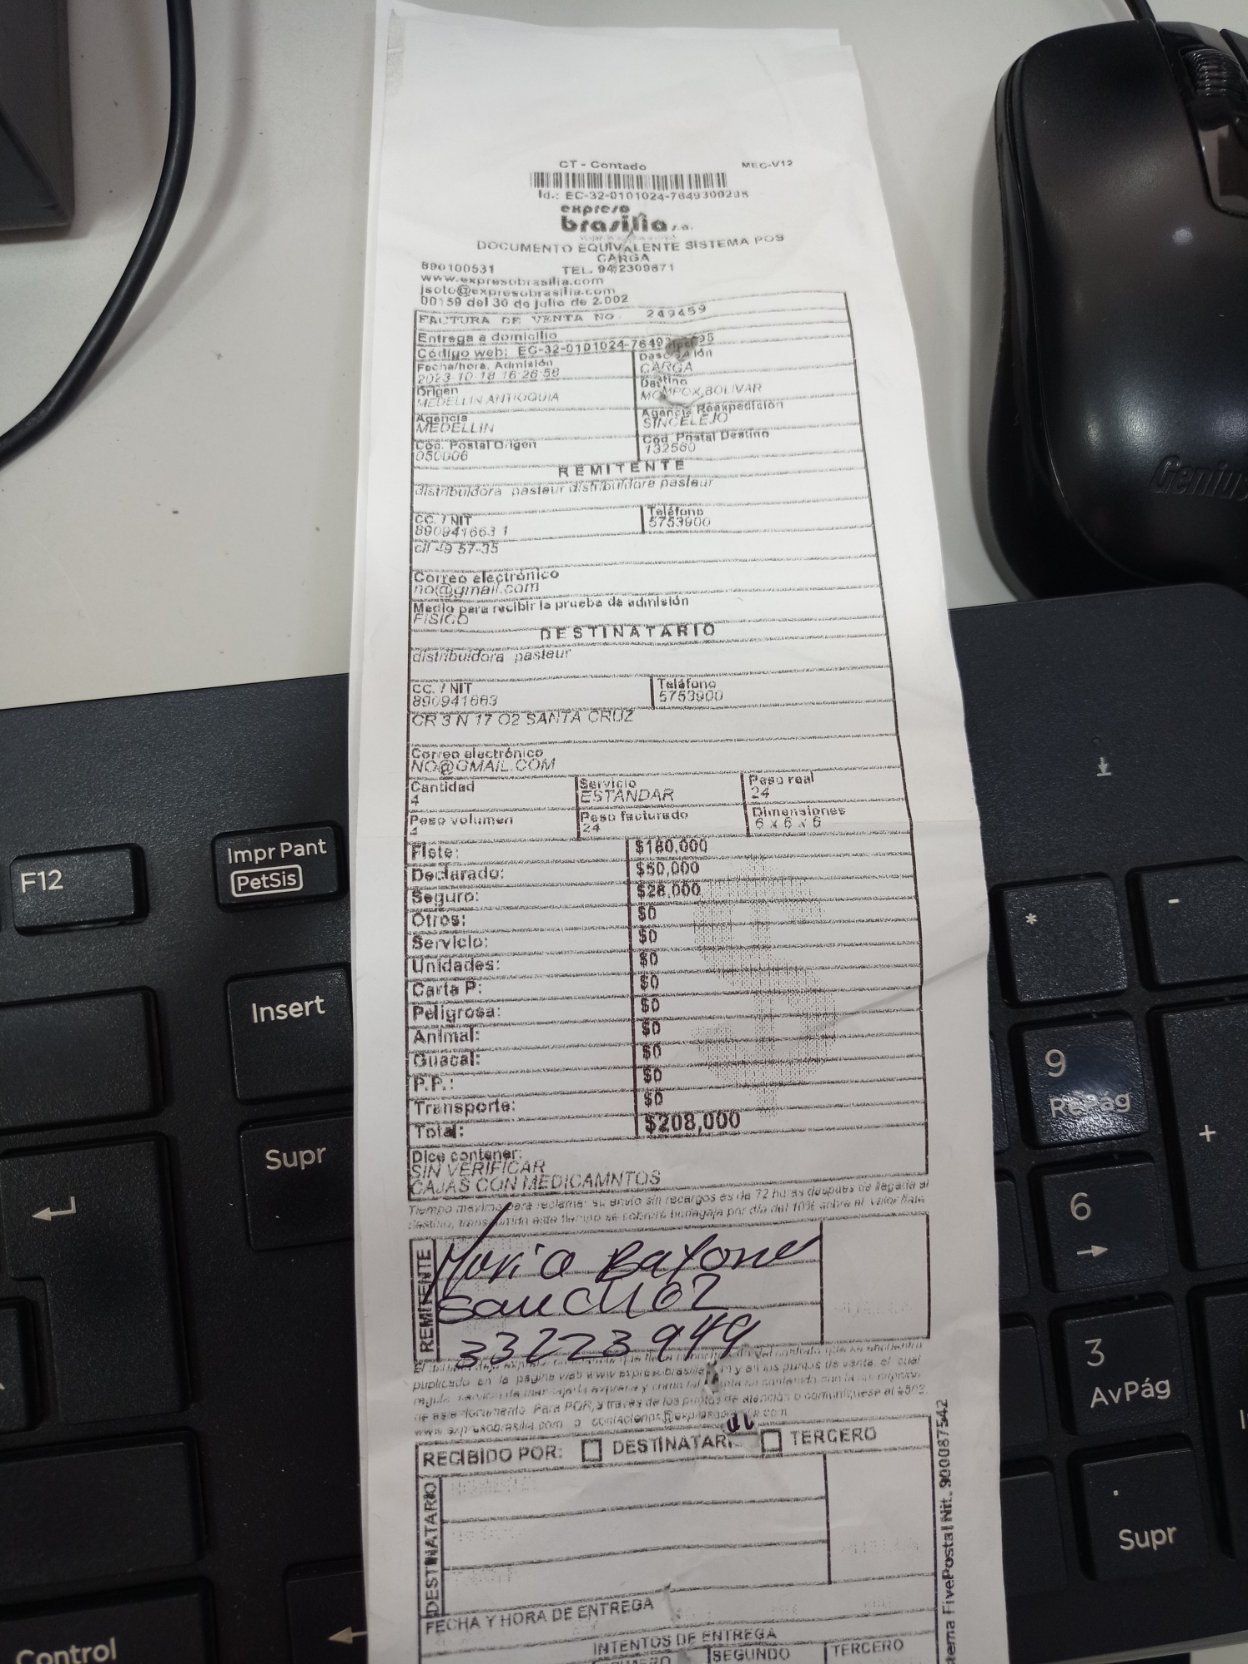 CT - Contado MEC-V12
Id.: EC-32-0101024-7649300295
expreso
brasilia s.a.
DOCUMENTO EQUIVALENTE SISTEMA POS
CARGA
890100531 TEL. 94 2309871
www.expresobrasilia.com
jsoto@expresobrasilia.com
00159 del 30 de julio de 2.002
FACTURA DE VENTA NO. 249459
Entrega a domicilio
Código web: EC-32-0101024-7649
Fecha/hora. Admisión
2023-10-18 16:26:58
CARGA
Origen
MEDELLIN ANTIOQUIA
Destino
MOMPOX,BOLIVAR
Agencia
MEDELLIN
Agencia Reexpedición
SINCELEJO
Cod. Postal Origen
050006
Cod. Postal Destino
132560
REMITENTE
distribuidora pasteur distribuidora pasteur
CC. / NIT
890941663 1
Teléfono
5753900
cll 49 57-35
Correo electrónico
no@gmail.com
Medio para recibir la prueba de admisión
FISICO
DESTINATARIO
distribuidora pasteur
CC. / NIT
890941663
Teléfono
5753900
CR 3 N 17 02 SANTA CRUZ
Correo electrónico
NO@GMAIL.COM
Cantidad
4
Servicio
ESTANDAR
Peso real
24
Peso volumen
4
Peso facturado
24
Dimensiones
6 x 6 x 6
Flete: $180,000
Declarado: $50,000
Seguro: $28,000
Otros: $0
Servicio: $0
Unidades: $0
Carta P: $0
Peligrosa: $0
Animal: $0
Guacal: $0
P.P.: $0
Transporte: $0
Total: $208,000
Dice contener:
SIN VERIFICAR
CAJAS CON MEDICAMNTOS
Tiempo maximo para reclamar su envio sin recargos es de 72 horas despues de llegada al
destino, transcurrido este tiempo se cobrará bodegaje por dia del 10% sobre el valor flete
REMITENTE
Maria Bayona
Sanchez
33223949
publicado en la pagina web www.expresobrasilia y en los puntos de venta, el cual
de este documento. Para PQR, a traves de los puntos de atención o comuniquese al
www.expresobrasilia.com o
RECIBIDO POR: DESTINATARI TERCERO
DESTINATARIO
FECHA Y HORA DE ENTREGA
INTENTOS DE ENTREGA
SEGUNDO TERCERO
stema FivePostal Nit. 900087542
Genius
F12
Impr Pant
PetSis
Insert
Supr
Control
*
-
9
RePág
+
6
3
AvPág
.
Supr